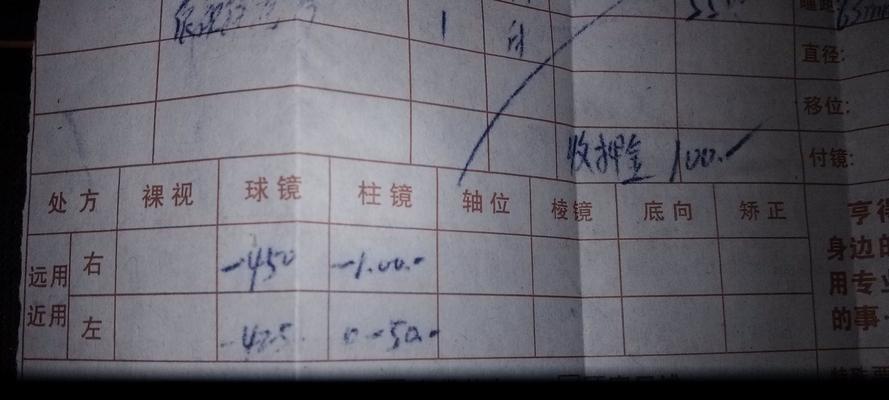 1 付
瞳距: 63mm
直径:
移位:
收押金 100.-
付镜:
处方 裸视 球镜 柱镜 轴位 棱镜 底向 矫正
远用 右 -450 -1.00.-
近用 左 -425 0-50.-
亨得
身边的
用专业
的事